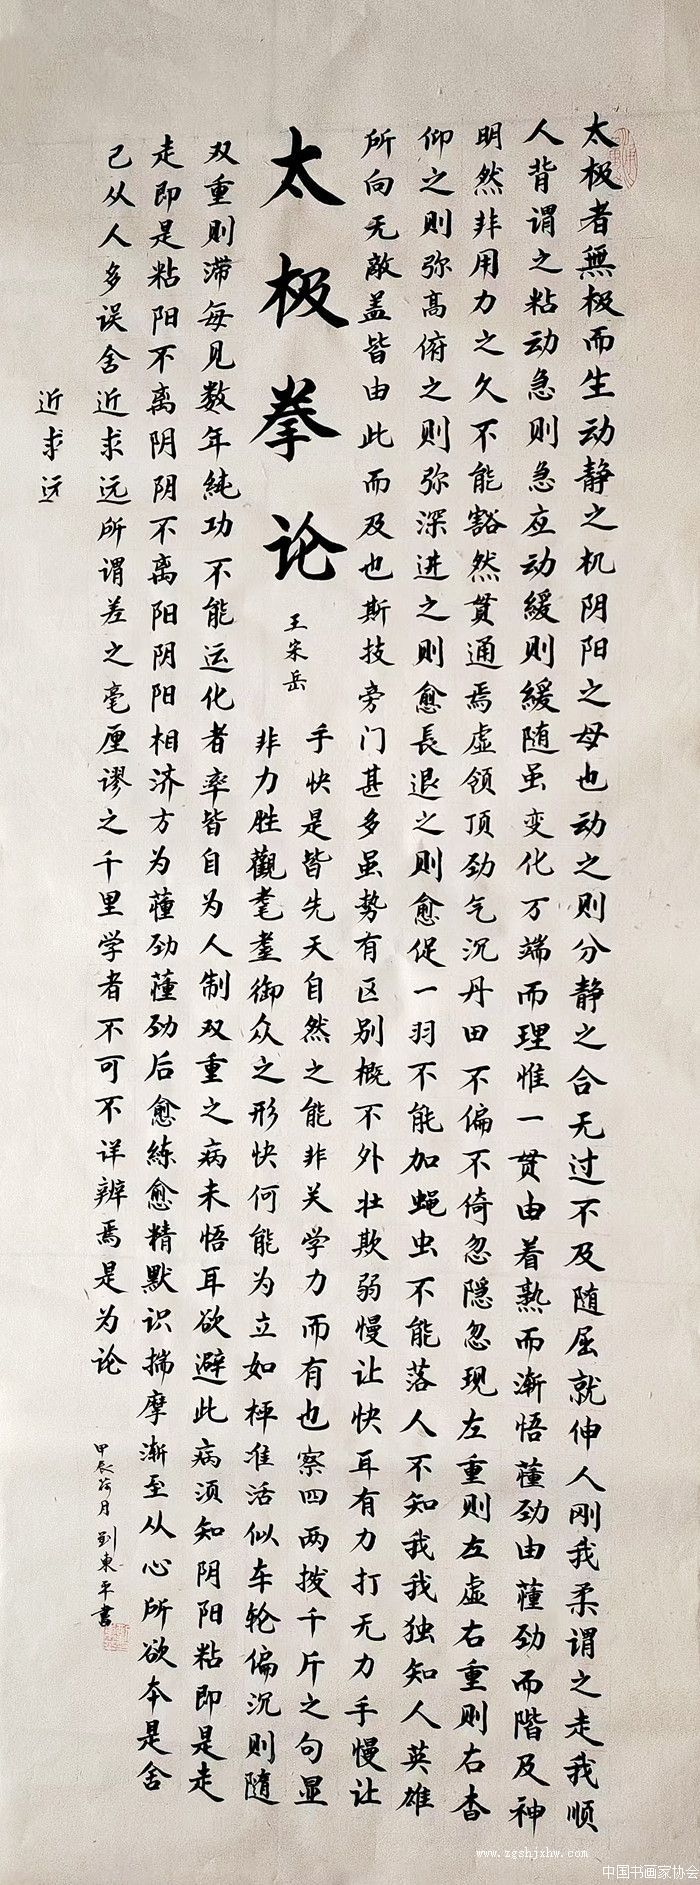 太极者無极而生动静之机阴阳之母也动之则分静之合无过不及随屈就伸人刚我柔谓之走我顺
人背谓之粘动急则急应动緩则緩随虽变化万端而理惟一贯由着熟而渐悟蕫劲由蕫劲而階及神
明然非用力之久不能豁然贯通焉虚领顶劲气沉丹田不偏不倚忽隐忽现左重则左虚右重则右杳
仰之则弥高俯之则弥深进之则愈長退之则愈促一羽不能加蝇虫不能落人不知我我独知人英雄
所向无敵盖皆由此而及也斯技旁门甚多虽势有区别概不外壮欺弱慢让快耳有力打无力手慢让
太极拳论
王宋岳
手快是皆先天自然之能非关学力而有也察四两拨千斤之句显
非力胜觀耄耋御众之形快何能为立如枰准活似车轮偏沉则随
双重则滞每见数年純功不能运化者率皆自为人制双重之病未悟耳欲避此病须知阴阳粘即是走
走即是粘阳不离阴阴不离阳阴阳相济方为蕫劲蕫劲后愈练愈精默识揣摩渐至从心所欲本是舍
己从人多误舍近求远所谓差之毫厘谬之千里学者不可不详辨焉是为论
甲辰荷月刘東平書
近求远
www.zgshjxhw.com
中国书画家协会